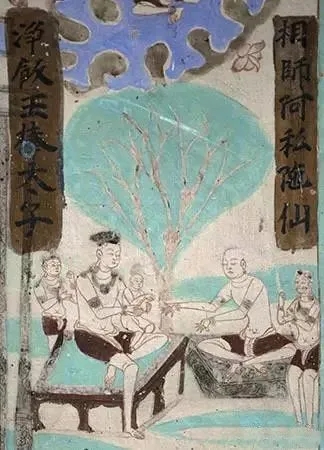 相師阿私陁仙
淨飯王捧太子